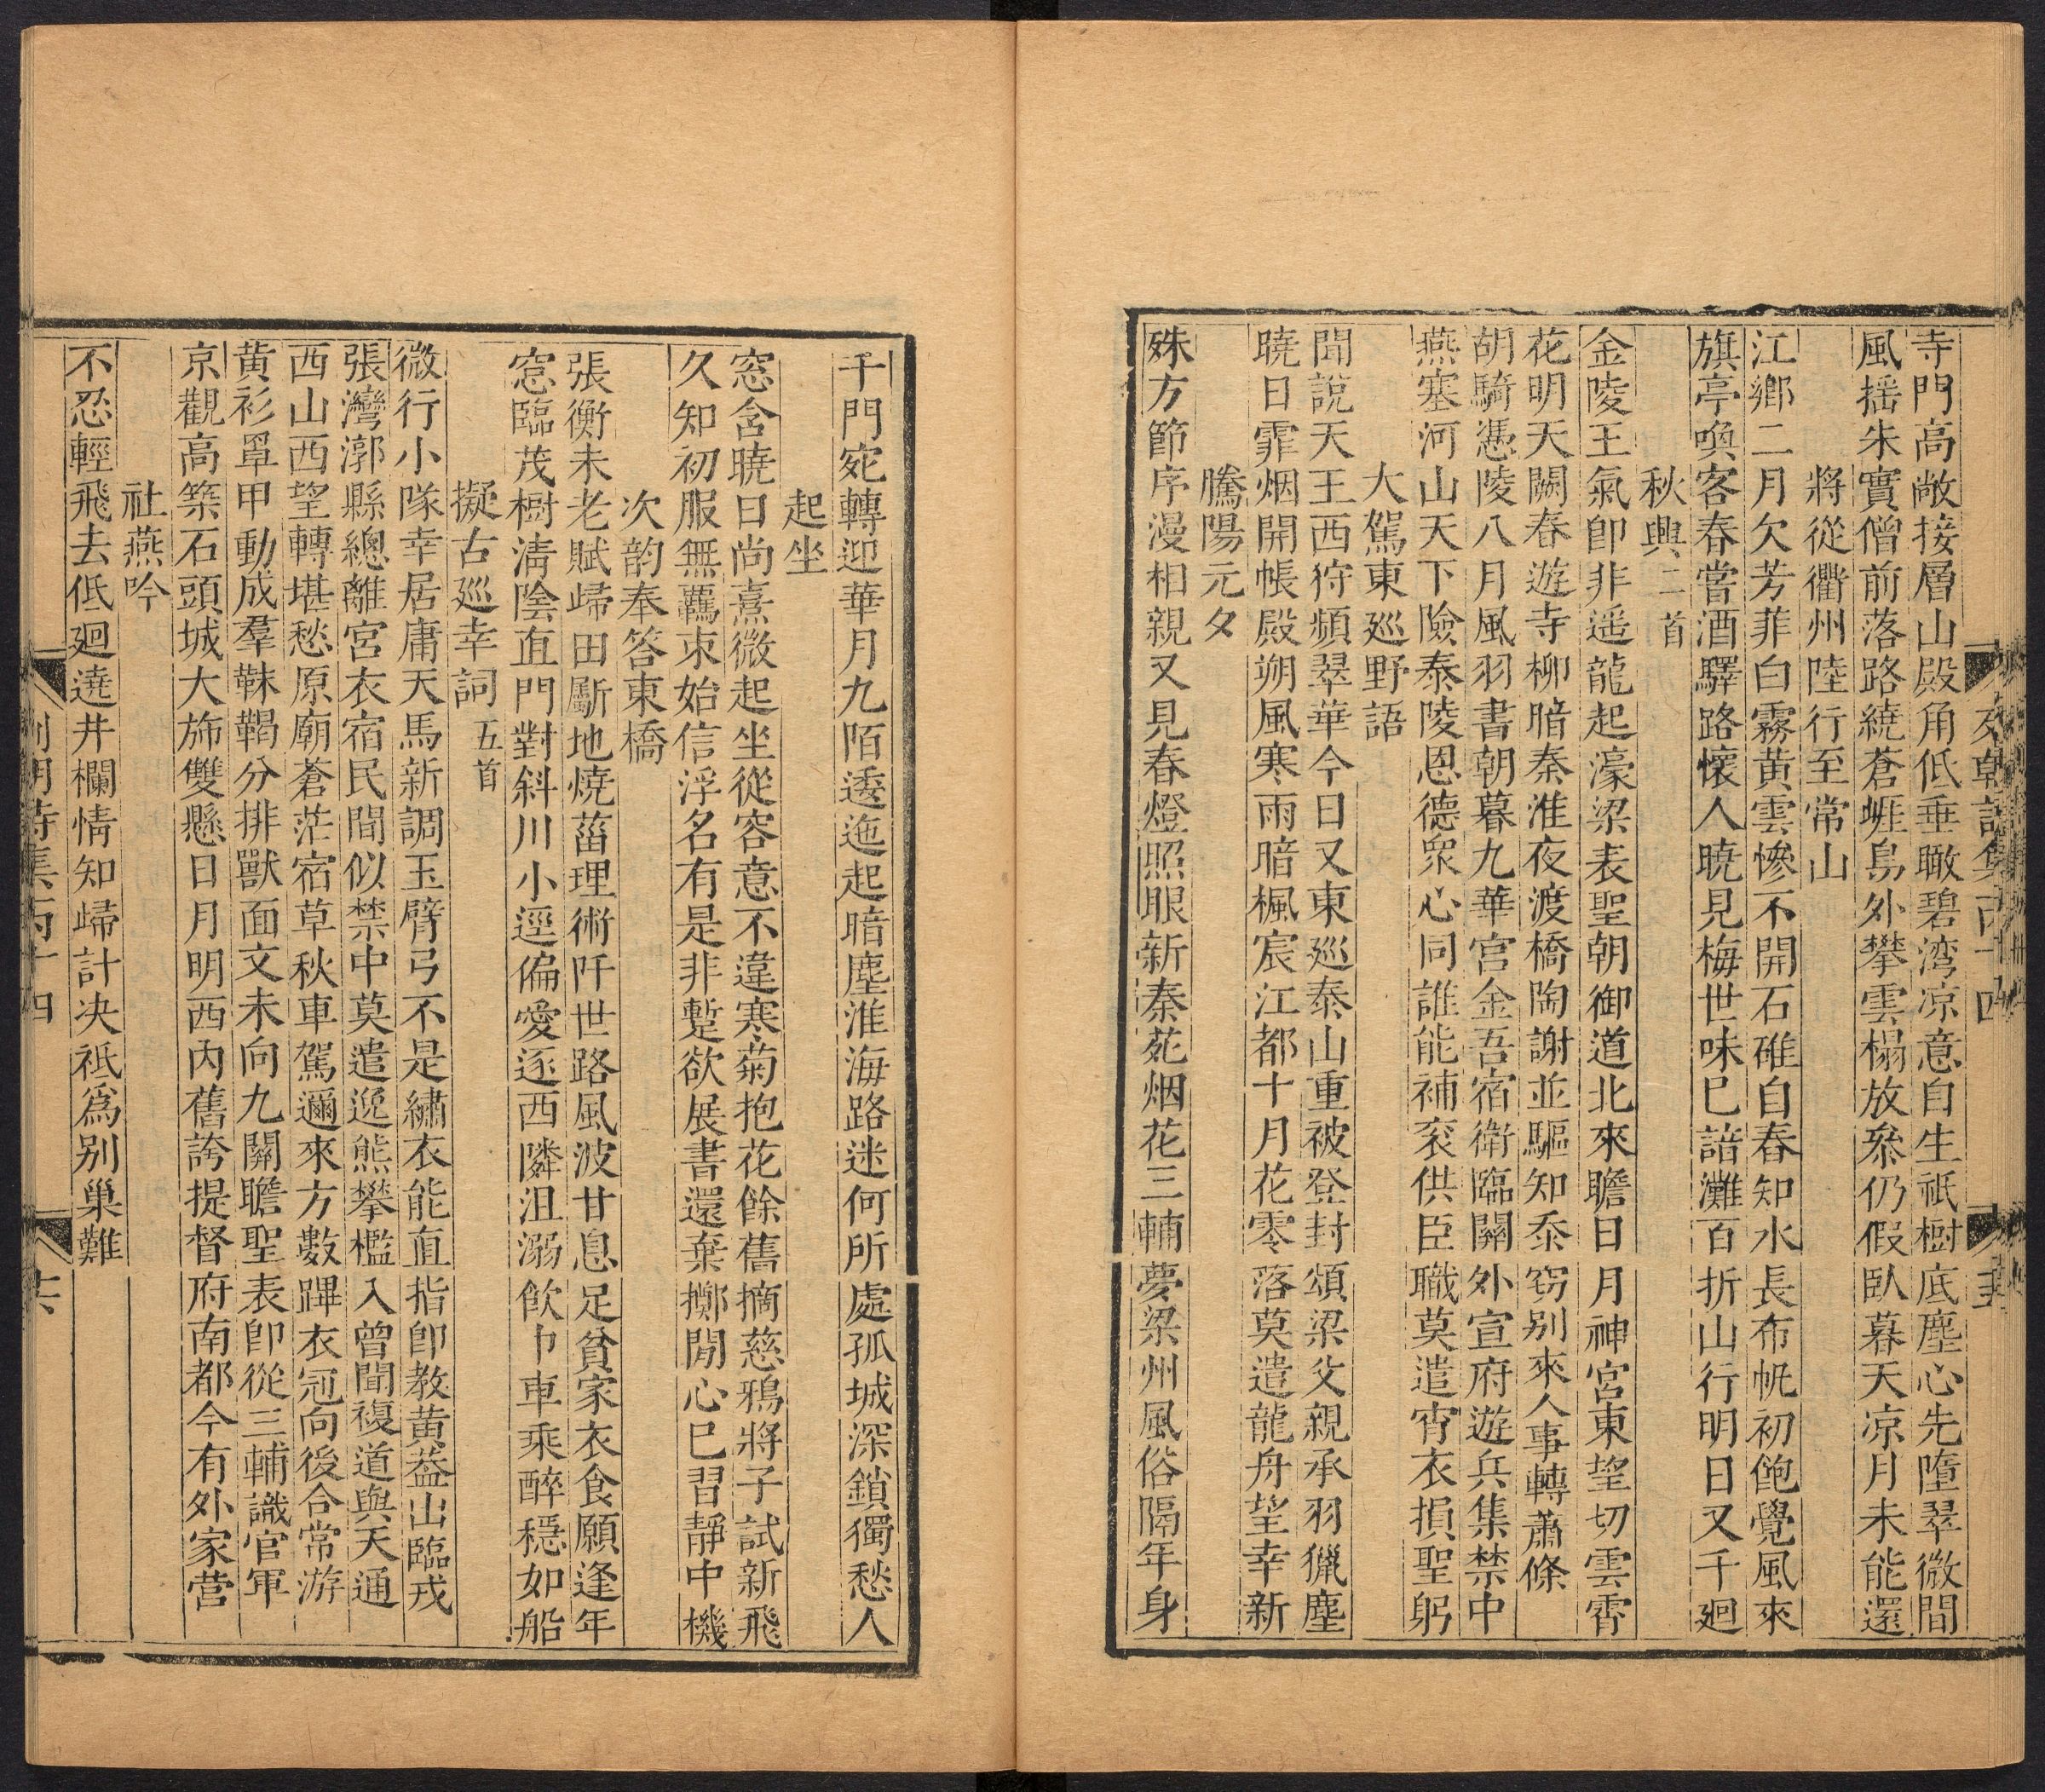 寺門高敞接層山殿角低垂瞰碧湾凉意自生祇樹底塵心先墮翠微間
風揺朱實僧前落路繞蒼崕鳥外攀雲榻放叅仍假臥暮天凉月未能還
將從衢州陸行至常山
江鄉二月欠芳菲白霧黃雲慘不開石碓自春知水長布帆初飽覺風來
旗亭喚客春嘗酒驛路懷人曉見梅世味已諳灘百折山行明日又千廻
秋興二首
金陵王氣卽非遥龍起濠梁表聖朝御道北來瞻日月神宮東望切雲霄
花明天闕春遊寺柳暗秦淮夜渡橋陶謝並驅知忝窃别來人事轉蕭條
胡騎憑陵八月風羽書朝暮九華宮金吾宿衛臨關外宣府遊兵集禁中
燕塞河山天下險泰陵恩德衆心同誰能補衮供臣職莫遣宵衣損聖躬
大駕東巡野語
聞說天王西狩頻翠華今日又東巡泰山重被登封頌梁父親承羽獵塵
曉日霏烟開帳殿朔風寒雨暗楓宸江都十月花零落莫遣龍舟望幸新
騰陽元夕
殊方節序漫相親又見春燈照眼新秦苑烟花三輔夢梁州風俗隔年身
千門宛轉迎華月九陌逶迤起暗塵淮海路迷何所處孤城深鎖獨愁人
起坐
窓含曉日尚熹微起坐從容意不違寒菊抱花餘舊摘慈鴉將子試新飛
久知初服無羈束始信浮名有是非蹔欲展書還棄擲閒心已習靜中機
次韵奉答東橋
張衡未老賦歸田斸地燒菑理術阡世路風波甘息足貧家衣食願逢年
窓臨茂樹淸陰直門對斜川小逕偏愛逐西隣沮溺飮巾車乘醉穩如船
擬古巡幸詞五首
微行小隊幸居庸天馬新調玉臂弓不是繡衣能直指卽教黃葢出臨戎
張灣漷縣總離宮衣宿民間似禁中莫遣逸熊攀檻入曾聞複道與天通
西山西望轉堪愁原廟蒼茫宿草秋車駕邇來方數蹕衣冠向後合常游
黃衫罩甲動成羣靺鞨分排獸面文未向九關瞻聖表卽從三輔識官軍
京觀高築石頭城大斾雙懸日月明西內舊誇提督府南都今有外家營
社燕吟
不忍輕飛去低廻遶井欄情知歸計决祇爲别巢難